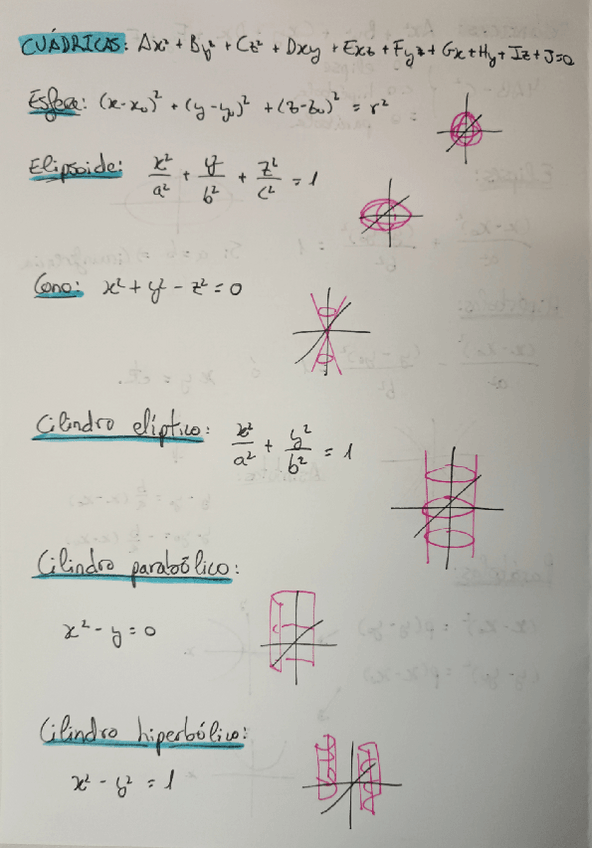 CUÁDRICAS: Ax² + By² + Cz² + Dxy + Exz + Fyz + Gx + Hy + Iz + J = 0
Esfera: (x-x₀)² + (y-y₀)² + (z-z₀)² = r²
Elipsoide: x²/a² + y²/b² + z²/c² = 1
Cono: x² + y² - z² = 0
Cilindro elíptico: x²/a² + y²/b² = 1
Cilindro parabólico:
x² - y = 0
Cilindro hiperbólico:
x² - y² = 1